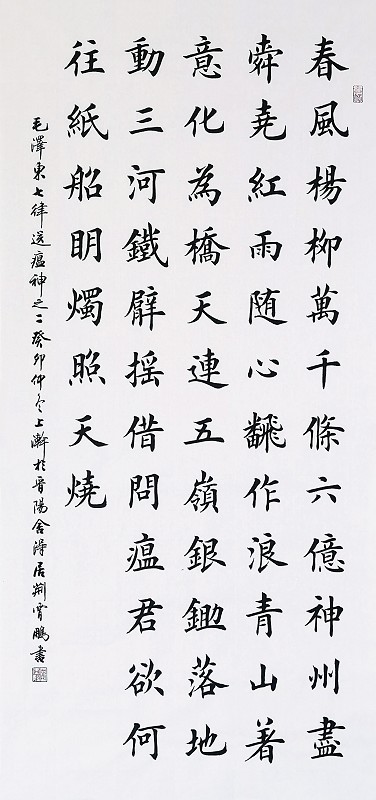 春風楊柳萬千條六億神州盡
舜堯紅雨随心飜作浪青山着
意化為橋天連五嶺銀鋤落地
動三河鐵臂摇借問瘟君欲何
往紙船眀燭照天燒
毛澤東七律送瘟神之二癸卯仲冬上澣於晋陽舍淂居荆霄鵬書